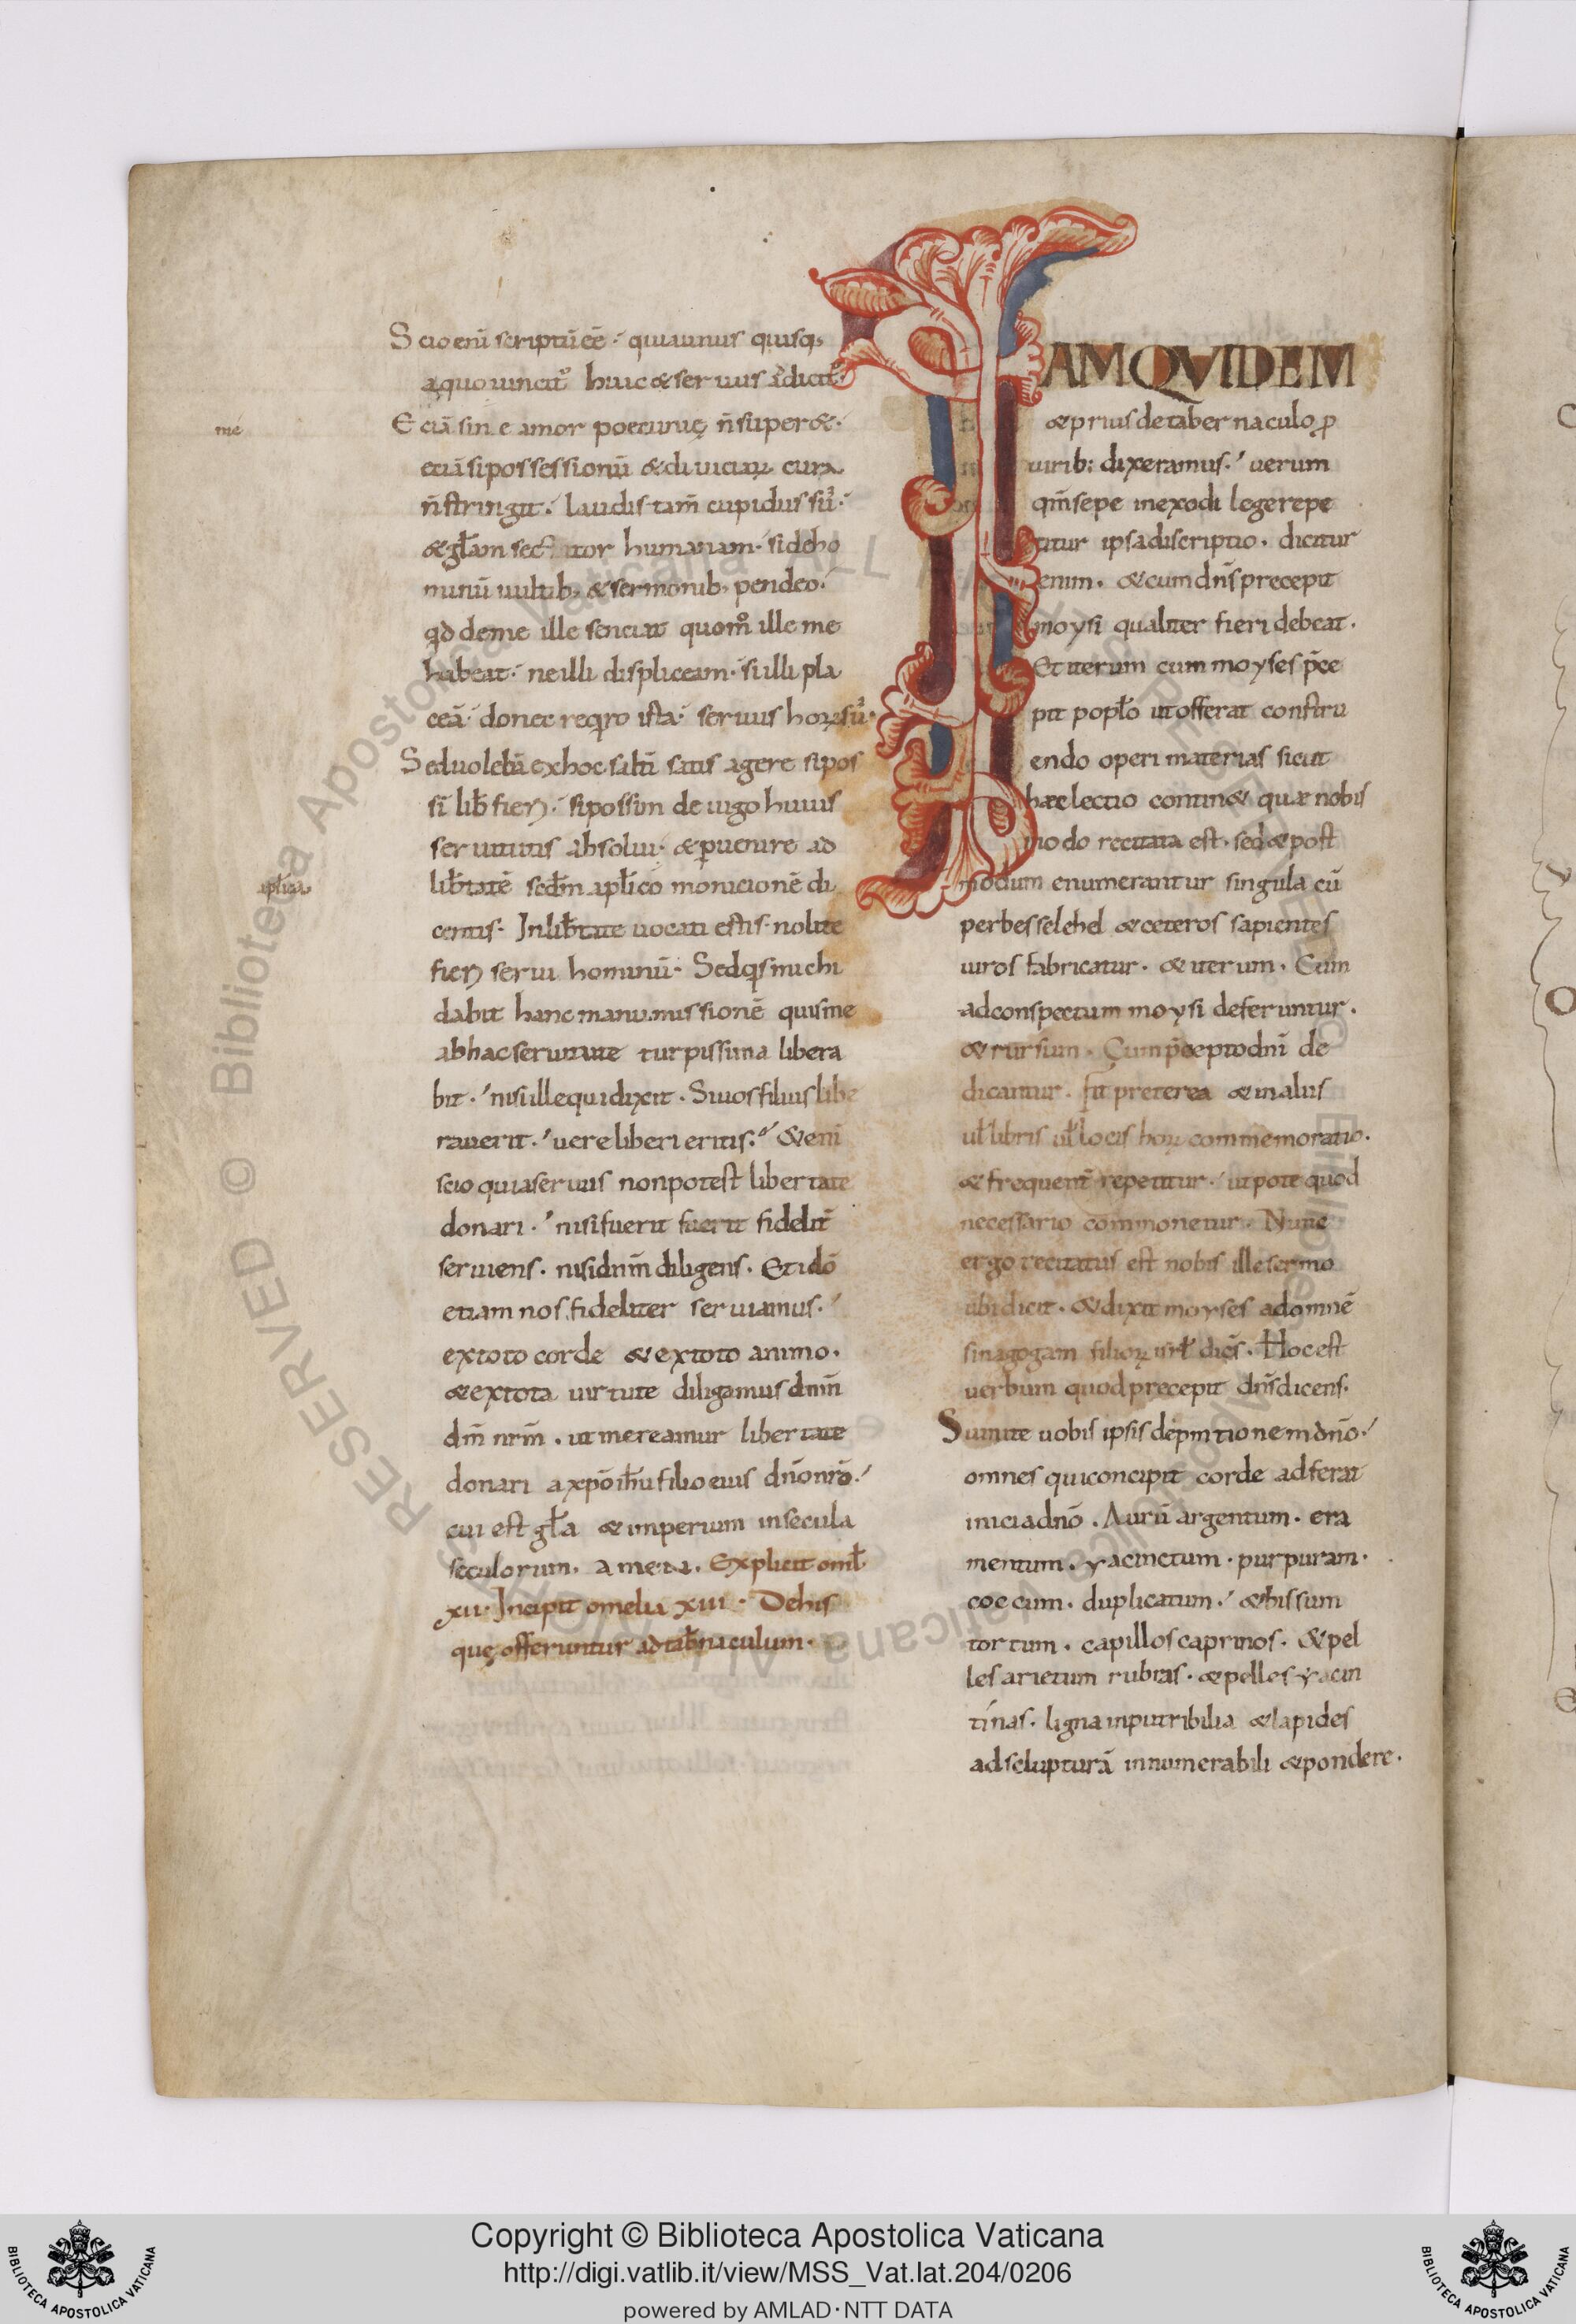 Scio enī scriptū eē· quia unus quisq;
a quo uincit᷒ huic & seruus addicit᷒·
Eciā sin e amor poecuniȩ n̄ super&·
me
etiā si possessionū & diuiciaꝝ cura
n̄ stringit· laudis tam̄ cupidus sū·
& gl̄am sectator humanam· si de ho
minū uultib; & sermonib; pendeo·
qd̄ de me ille senciat quom̊ ille me
habeat· ne illi displiceam· si illi pla
ceā· donec reqro ista· seruus hoꝝ sū·
Sed uolebā ex hoc saltī satis agere si pos
sī lib̄ fieꝝ· si possim de iugo huius
seruitutis absolui· & ꝑuenire ad
lib̄tatē scd̄m apl̄icō monicionē di
apl̄icā
centis· In lib̄tate uocati estis· nolite
fieꝝ serui hominū· Sed qs michi
dabit hanc manumissionē quis me
ab hac seruitute turpissima libera
bit· nisi ille qui dixit· Si uos filius libe
rauerit· uere liberi eritis· & enī
scio quia seruus non potest libertate
donari· nisi fuerit fuerit fidelit̄
seruiens· nisi dnm̄ diligens. Et idō
etiam nos fideliter seruiamus·
ex toto corde & ex toto animo·
& ex tota uirtute diligamus dnm̄
dm̄ nrm̄· ut mereamur libertate
donari a xp̄o ih̄u filio eius dn̄o nr̄o·
cui est gl̄a & imperium in secula
seculorum· amen. Explicit omel̄
xii· Incipit omelia xiii· De his
quȩ offeruntur ad tab̄naculum·
IAM QVIDEM
& prius de tabernaculo ꝓ
uirib: dixeramus· uerum
qm̄ sepe in exodi lege repe
titur ipsa discriptio· dicitur
enim· & cum dn̄s precepit
moysi qualiter fieri debeat·
Et iterum cum moyses p̄ce
pit popl̄o ut offerat constru
endo operi materias sicut
hæc lectio contin& quæ nobis
modo recitata est· sed & post
modum enumerantur singula cū
per besselehel & ceteros sapientes
uiros fabricatur· & iterum· Cum
ad conspectum moysi deferuntur·
& rursum· Cum p̄cepto dnī de
dicantur· fit preterea & in aliis
ul̄ libris ul̄ locis hoꝝ commemoratio·
& frequent̄ repetitur· ut pote quod
necessario commonetur· Nunc
ergo recitatus est nobis ille sermo
ubi dicit· & dixit moyses ad omnē
sinagogam filioꝝ isrl̄ dicēs· Hoc est
uerbum quod precepit dn̄s dicens·
Sumite uobis ipsis dēpmtionem dn̄o·
omnes qui concipit corde adferat
inicia dn̄o· Aurū argentum· era
mentum· yacinctum· purpuram·
coccum· duplicatum· & bissum
tortum· capillos caprinos· & pel
les arietum rubras· & pelles yacin
tinas· ligna inputribilia & lapides
ad sclupturā innumerabili & pondere·
Copyright © Biblioteca Apostolica Vaticana
http://digi.vatlib.it/view/MSS_Vat.lat.204/0206
powered by AMLAD·NTT DATA